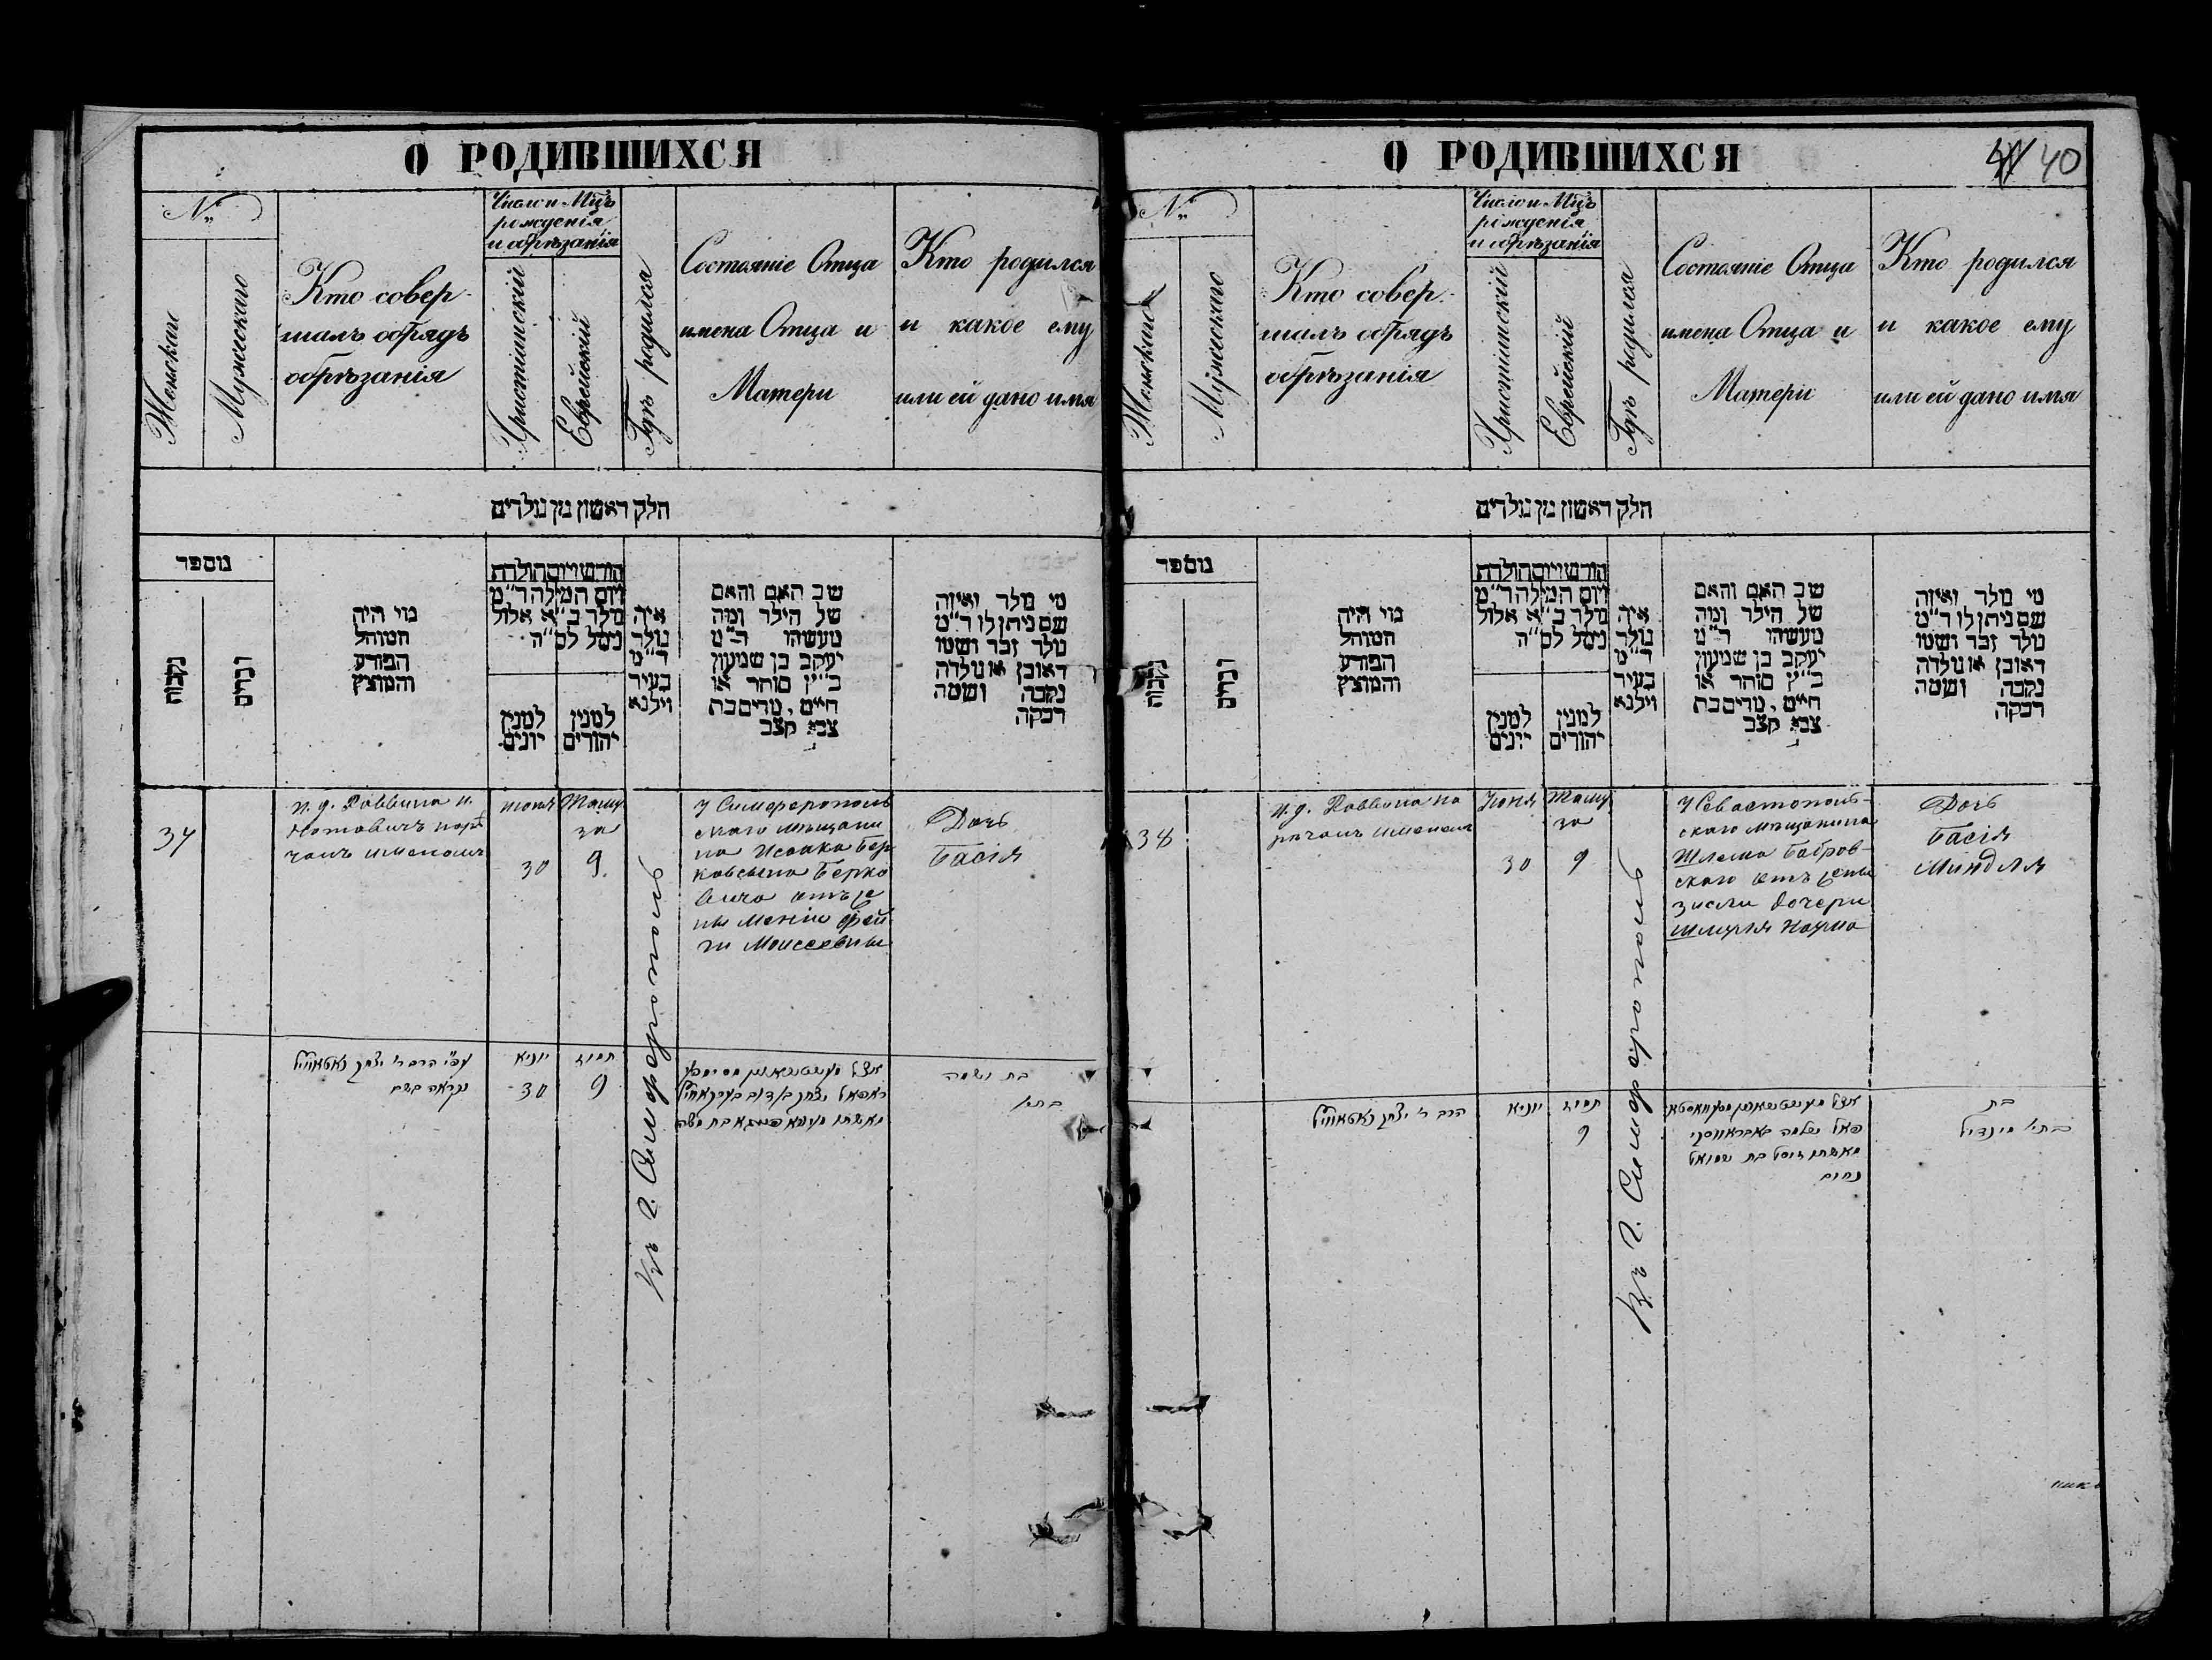 О РОДИВШИХСЯ
№
Женскаго
Мужескаго
Кто совер-
шалъ обрядъ
обрѣзанія
Число и Мцъ
рожденія
и обрѣзанія
Христіанскій
Еврейскій
Гдѣ родился
Состояніе Отца
имена Отца и
Матери
Кто родился
и какое ему
или ей дано имя
חלק ראשון מן נולדים
מספר
נקבות
זכרים
מי היה
המוהל
הפורע
והמוצץ
חודש ויום הולדת
ויום המילה ד״מ
נולד ב״א אלול
נימל לס״ה
למנין
יונים
למנין
יהודים
איה
נולד
ד״מ
בעיר
וילנא
שב האם והאם
של הילד ומה
מעשהו ד״מ
יעקב בן שמעון
כ״ץ סוחר או
חייט, מרים בת
צבי קצב
מי נולד ואיזה
שם ניתן לו ד״מ
נולד זכר ושמו
ראובן או נולדה
נקבה ושמה
רבקה
37
и. д. Раввина И.
Нотовичъ наре
чанъ именемъ
июня
30
Таму
за
9.
Въ г. Симферополь
У Симферополь
скаго мѣщани
на Исаака Бер
ковсына Берко
вича отъ же
ны Меніи Фей
ги Моисеевны
Дочь
Басія
עפ״י הרב ר׳ יצחק נאטאוויץ
נקראה בשם
יוניא
30
תמוז
9
בת ושמה
בתי׳
О РОДИВШИХСЯ
40
№
Женскаго
Мужескаго
Кто совер-
шалъ обрядъ
обрѣзанія
Число и Мцъ
рожденія
и обрѣзанія
Христіанскій
Еврейскій
Гдѣ родился
Состояніе Отца
имена Отца и
Матери
Кто родился
и какое ему
или ей дано имя
חלק ראשון מן נולדים
מספר
נקבות
זכרים
מי היה
המוהל
הפורע
והמוצץ
חודש ויום הולדת
ויום המילה ד״מ
נולד ב״א אלול
נימל לס״ה
למנין
יונים
למנין
יהודים
איה
נולד
ד״מ
בעיר
וילנא
שב האם והאם
של הילד ומה
מעשהו ד״מ
יעקב בן שמעון
כ״ץ סוחר או
חייט, מרים בת
צבי קצב
מי נולד ואיזה
שם ניתן לו ד״מ
נולד זכר ושמו
ראובן או נולדה
נקבה ושמה
רבקה
38
И. д. Раввина на
речанъ именемъ
Июня
30
Таму
за
9
Въ г. Симферополь
У Севастополь-
скаго мѣщанина
Шлема Бобров-
скаго отъ жены
Зисли дочери
Шмуля Нахма
Дочь
Басія
Миндля
הרב ר׳ יצחק נאטאוויץ
יוניא
תמוז
9
ואשתו זיסל בת שמואל
נחום
בת
בתי׳ מינדיל